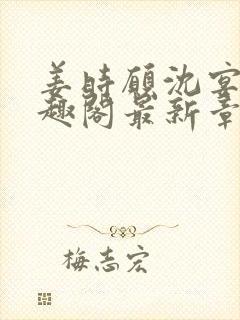 姜時願沈宴
趣閣最新章
梅志宏